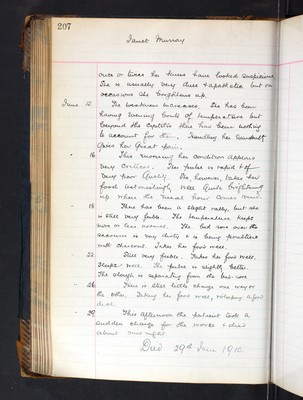 207
Janet Murray
once or twice her knees have looked suspicious
She is usually very dull & apathetic but on
occasions she brightens up.
June 12. The weakness increases. She has been
having evening bouts of temperature but
beyond the cystitis there has been nothing
to account for them. Handling her
gives her great pain.
" 16. This morning her condition appears
very critical. Her pulse is rapid & of
very poor quality. She, however, takes her
food astonishingly well quite brightening
up when the usual hour comes round.
" 18. There has been a slight rally but she
is still very feeble. The temperature keeps
more or less normal. The bed sore over the
sacrum is very dirty & is being poulticed
with charcoal. Takes her food well.
" 22. Still very feeble. Takes her food well.
Sleeps well. The pulse is slightly better.
The slough is separating from the bed-sore.
" 26. There is still little change one way or
the other. Taking her food well, & sleeping a good
deal.
" 29. This afternoon the patient took a
sudden change for the worse & died
about midnight.
Died 29th June 1910.